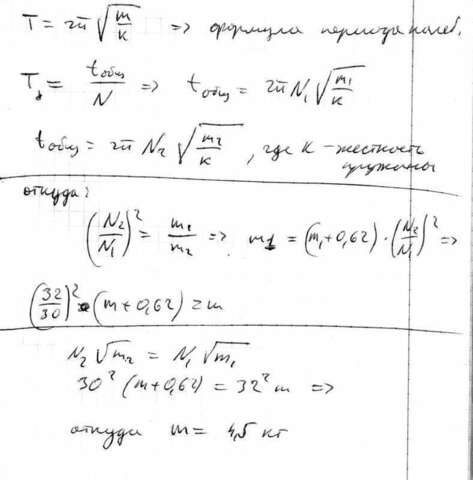 T = 2π √(m/k) => формула периода колеб.
T₁ = tобщ/N => tобщ = 2π N₁ √(m₁/k)
tобщ = 2π N₂ √(m₂/k), где k - жесткость
пружины
откуда:
(N₂/N₁)² = m₁/m₂ => m1 = (m₁+0,62)·(N₂/N₁)² =>
(32/30)² · (m+0,62) = m
N₂ √m₂ = N₁ √m₁
30² (m+0,62) = 32² m =>
откуда m = 4,5 кг